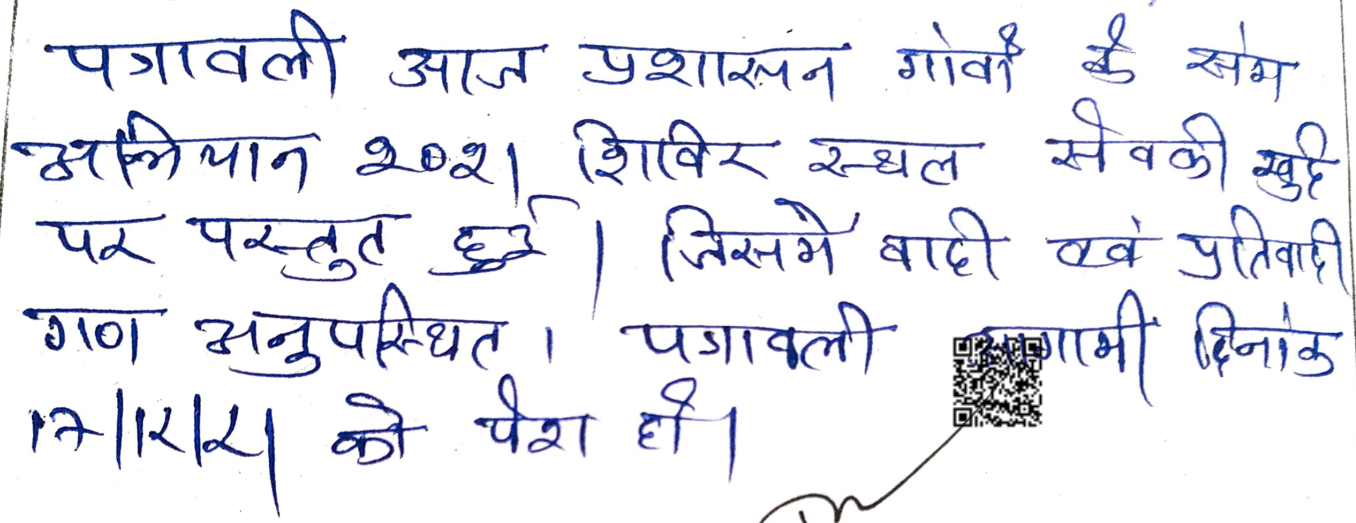 पत्रावली आज प्रशासन गांवों के संग
अभियान २०२१ शिविर स्थल सेवकी खुर्द
पर पस्तुत हुई। जिसमें वादी एवं प्रतिवादी
गण अनुपस्थित। पत्रावली आगामी दिनांक
17/12/21 को पेश हो।